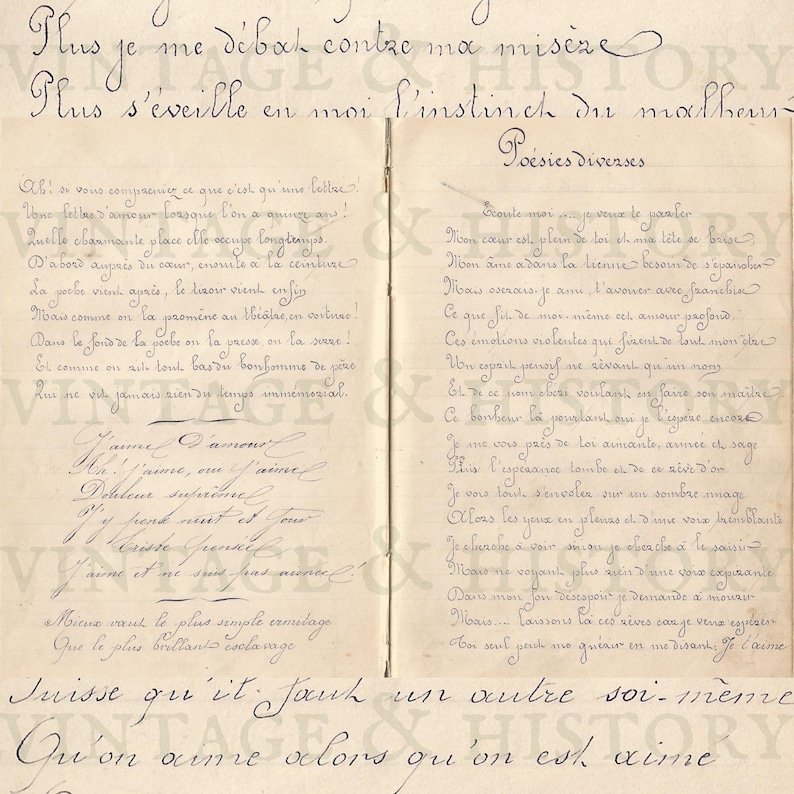 Plus je me débat contre ma misère
Plus s'éveille en moi l'instinct du malheur
Ah! si vous compreniez ce que c'est qu'une lettre!
Une lettre d'amour lorsque l'on a quinze ans!
Quelle charmante place elle occupe longtemps.
D'abord auprès du cœur, ensuite à la ceinture
La poche vient après, le tiroir vient enfin
Mais comme on la promène au théâtre, en voiture!
Dans le fond de la poche on la presse on la serre!
Et comme on rit tout bas du bonhomme de père
Qui ne vit jamais rien du temps immémorial.
J'aime D'amour
Ah! j'aime, oui j'aime
Douleur suprême
J'y pense nuit et jour
Triste pensée
J'aime et ne suis pas aimée!
Mieux vaut le plus simple ermitage
Que le plus brillant esclavage
Poésies diverses
Ecoute moi .... je veux te parler
Mon cœur est plein de toi et ma tête se brise,
Mon âme a dans la tienne besoin de s'épancher
Mais oserais-je ami, t'avouer avec franchise
Ce que fit de moi-même cet amour profond,
Ces émotions violentes qui firent de tout mon être
Un esprit pensif ne rêvant qu'un nom
Et de ce nom chéri voulant en faire son maître
Ce bonheur là pourtant oui je l'espère encore
Je me vois près de toi aimante, aimée et sage
Puis l'espérance tombe et de ce rêve d'or
Je vois tout s'envoler sur un sombre nuage
Alors les yeux en pleurs et d'une voix tremblante
Je cherche à voir sinon je cherche à le saisir
Mais ne voyant plus rien d'une voix expirante
Dans mon fou désespoir je demande à mourir
Mais.... laissons là ces rêves car je veux espérer
Toi seul peut me guérir en me disant: Je t'aime
qu'it faut un autre soi-même
Qu'on aime alors qu'on est aimé
VINTAGE & HISTORY
VINTAGE & HISTORY
VINTAGE & HISTORY
VINTAGE & HISTORY
VINTAGE & HISTORY